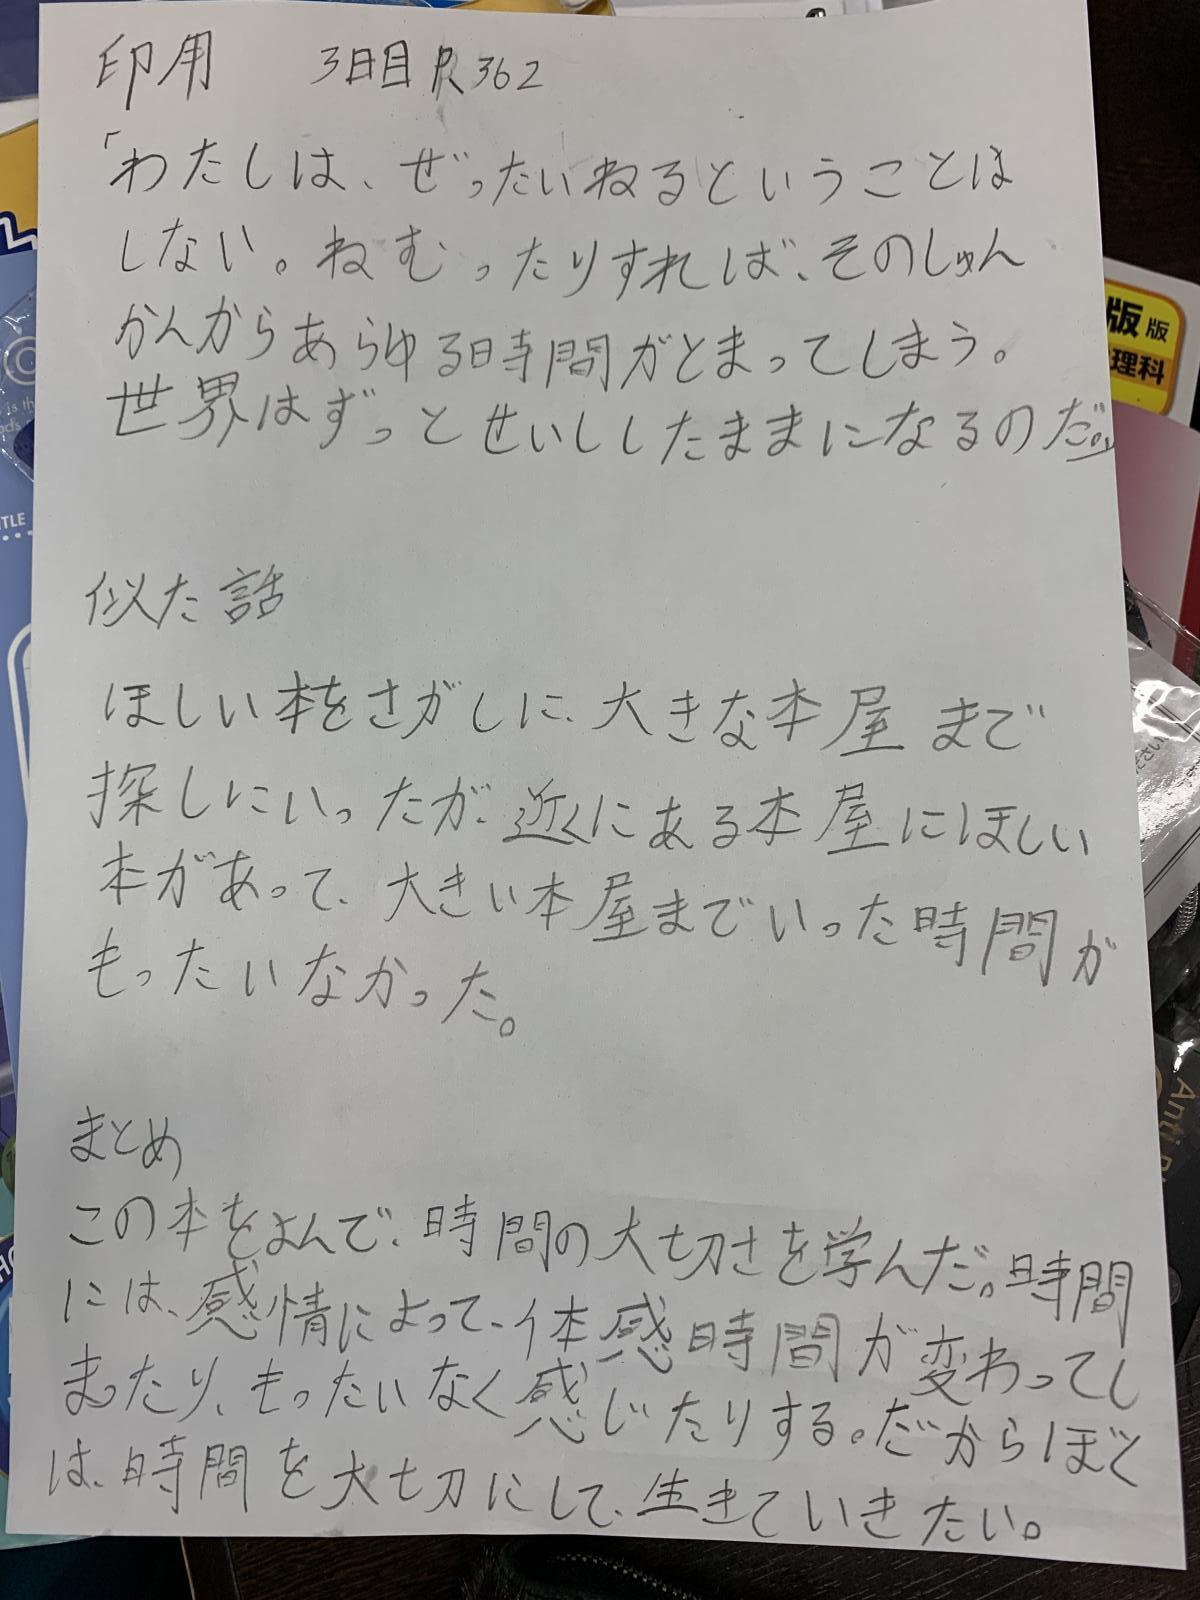 印用　3日目 P.362
「わたしは、ぜったいねるということは
しない。ねむったりすれば、そのしゅん
かんからあらゆる時間がとまってしまう。
世界はずっとせいししたままになるのだ。」
似た話
ほしい本をさがしに、大きな本屋まで
探しにいったが、近くにある本屋にほしい
本があって、大きい本屋までいった時間が
もったいなかった。
まとめ
この本をよんで、時間の大切さを学んだ。時間
には、感情によって、体感時間が変わってし
まったり、もったいなく感じたりする。だからぼく
は、時間を大切にして、生きていきたい。
版 版
理科
TLE
Anti